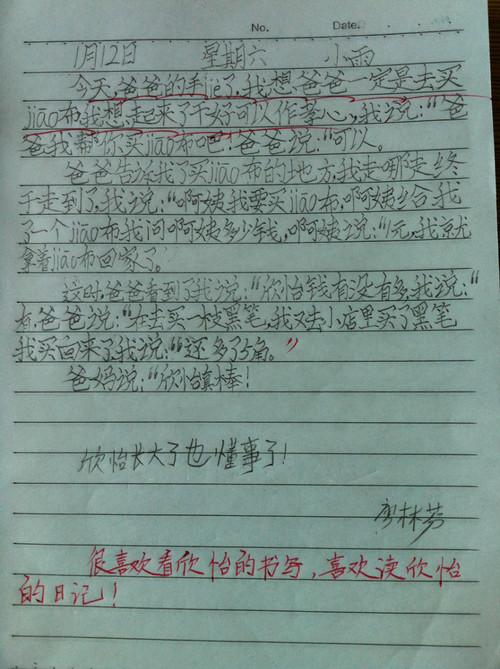 No. Date.
1月12日 星期六 小雨
今天,爸爸的手jiě了,我想:爸爸一定是去买
jiāo布,我想,起来了不好可以作孝心,我说:“爸
爸我帮你买jiāo布吧!爸爸说:“可以。
爸爸告诉我了买jiāo布的地方,我走啊走终
于走到了,我说:“啊姨我要买jiāo布,啊姨给我
了一个jiāo布,我问啊姨多少钱,啊姨说:“1元,我就
拿着jiāo布回家了。
这时,爸爸看到了我说:“欣怡钱有没有多,我说:“
有,爸爸说:“在去买一枝黑笔,我又去小店里买了黑笔
我买回来了,我说:“还多了5角。”
爸妈说:“欣怡真棒!
欣怡长大了也懂事了!
廖林芬
很喜欢看欣怡的书写,喜欢读欣怡
的日记!